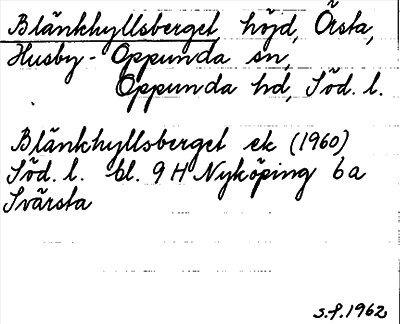 Blänkhyllsberget, höjd, Örsta,
Husby-Oppunda sn,
Oppunda hd, Söd. l.
Blänkhyllsberget ek (1960)
Söd. l. bl. 9 H Nyköping 6 a
Svärsta
s.f. 1962